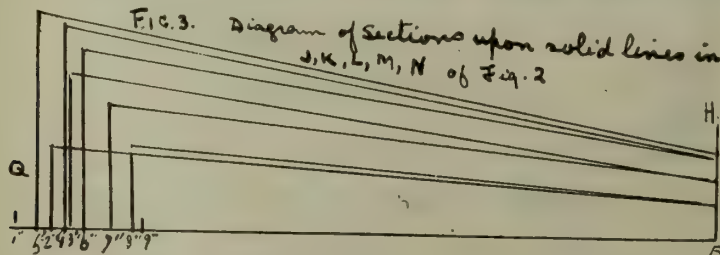 FIG. 3. Diagram of Sections upon solid lines in
J, K, L, M, N of Fig. 2
H
Q
1" 5" 2" 4" 3" 6" 7" 8" 9"